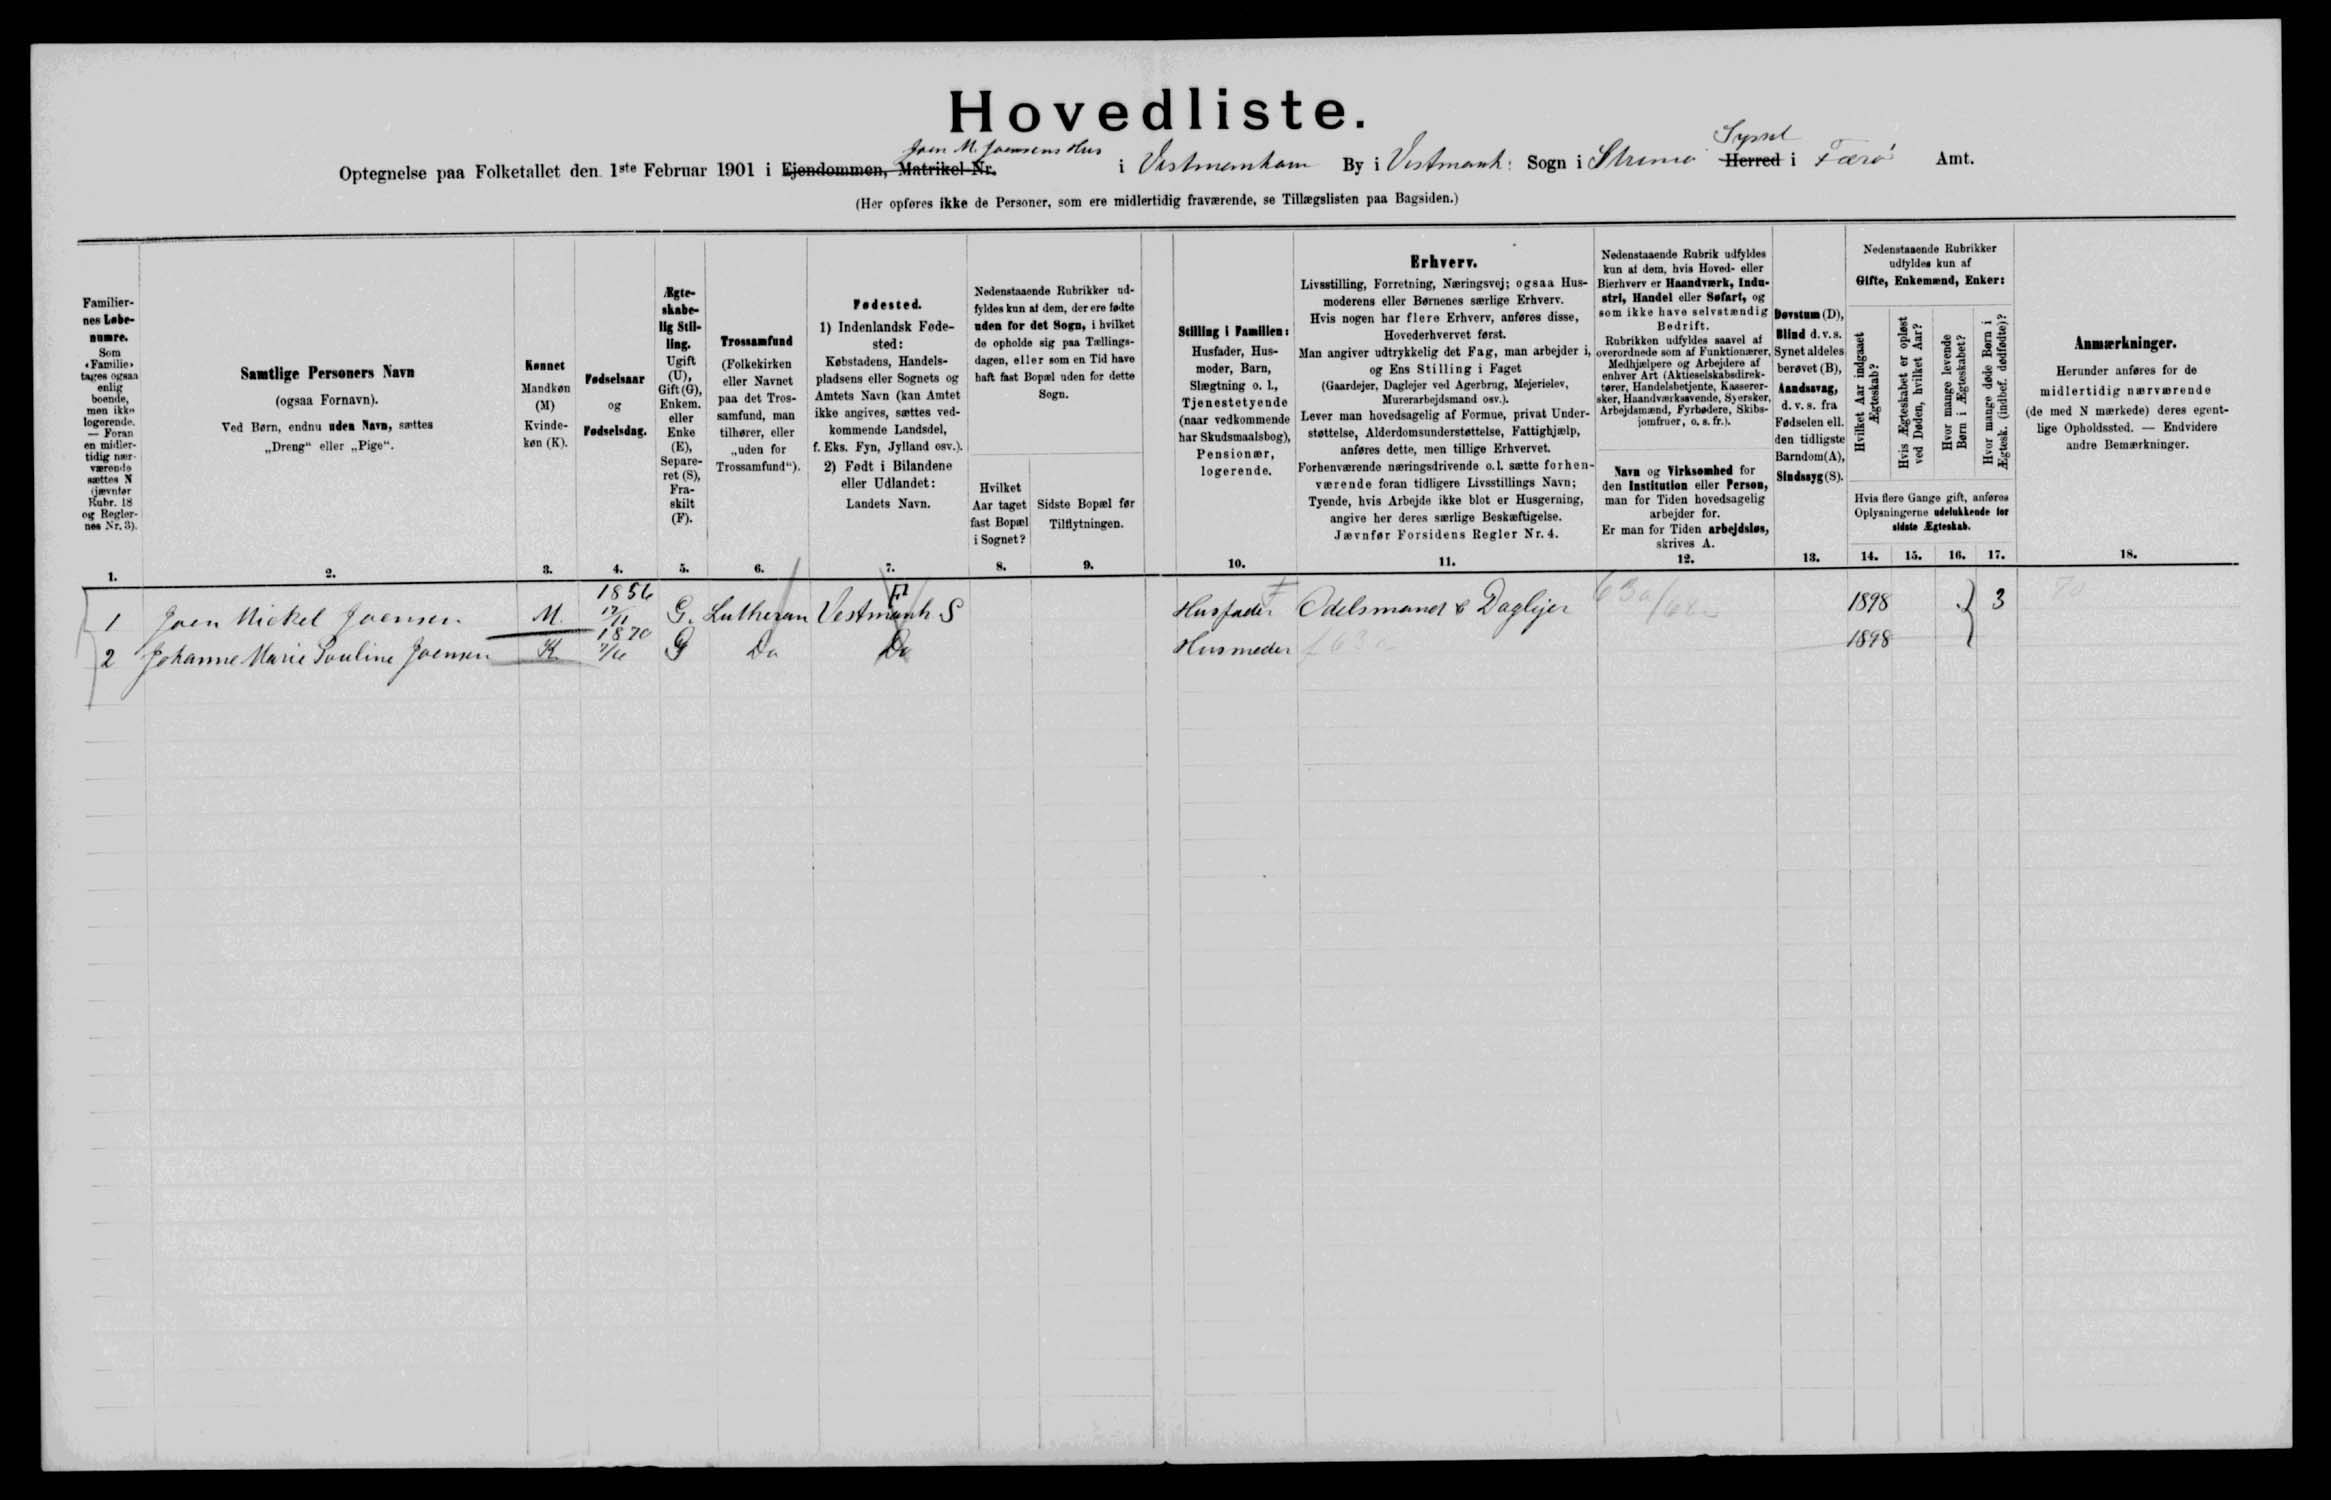 Hovedliste.
Joen M. Joensens Hus
Syssel
Optegnelse paa Folketallet den 1ste Februar 1901 i Ejendommen, Matrikel-Nr. i Vestmanham By i Vestmanh: Sogn i Strømø Herred i Færø Amt.
(Her opføres ikke de Personer, som ere midlertidig fraværende, se Tillægslisten paa Bagsiden.)
Familier-
nes Løbe-
numre.
Som
«Familie»
tages ogsaa
enlig
boende,
men ikke
logerende.
— Foran
en midler-
tidig nær-
værende
sættes N
(jævnfør
Rubr. 18
og Regler-
nes Nr. 3).
1.
Samtlige Personers Navn
(ogsaa Fornavn).
Ved Børn, endnu uden Navn, sættes
„Dreng“ eller „Pige“.
2.
Kønnet
Mandkøn
(M)
Kvinde-
køn (K).
3.
Fødselsaar
og
Fødselsdag.
4.
Ægte-
skabe-
lig Stil-
ling.
Ugift
(U),
Gift (G),
Enkem.
eller
Enke
(E),
Separe-
ret (S),
Fra-
skilt
(F).
5.
Trossamfund
(Folkekirken
eller Navnet
paa det Tros-
samfund, man
tilhører, eller
„uden for
Trossamfund“).
6.
Fødested.
1) Indenlandsk Føde-
sted:
Købstadens, Handels-
pladsens eller Sognets og
Amtets Navn (kan Amtet
ikke angives, sættes ved-
kommende Landsdel,
f. Eks. Fyn, Jylland osv.).
2) Født i Bilandene
eller Udlandet:
Landets Navn.
7.
Nedenstaaende Rubrikker ud-
fyldes kun af dem, der ere fødte
uden for det Sogn, i hvilket
de opholde sig paa Tællings-
dagen, eller som en Tid have
haft fast Bopæl uden for dette
Sogn.
Hvilket
Aar taget
fast Bopæl
i Sognet?
8.
Sidste Bopæl før
Tilflytningen.
9.
Stilling i Familien:
Husfader, Hus-
moder, Barn,
Slægtning o. l.,
Tjenestetyende
(naar vedkommende
har Skudsmaalsbog),
Pensionær,
logerende.
10.
Erhverv.
Livsstilling, Forretning, Næringsvej; ogsaa Hus-
moderens eller Børnenes særlige Erhverv.
Hvis nogen har flere Erhverv, anføres disse,
Hovederhvervet først.
Man angiver udtrykkelig det Fag, man arbejder i,
og Ens Stilling i Faget
(Gaardejer, Daglejer ved Agerbrug, Mejerielev,
Murerarbejdsmand osv.).
Lever man hovedsagelig af Formue, privat Under-
støttelse, Alderdomsunderstøttelse, Fattighjælp,
anføres dette, men tillige Erhvervet.
Forhenværende næringsdrivende o. l. sætte forhen-
værende foran tidligere Livsstillings Navn;
Tyende, hvis Arbejde ikke blot er Husgerning,
angive her deres særlige Beskæftigelse.
Jævnfør Forsidens Regler Nr. 4.
11.
Nedenstaaende Rubrik udfyldes
kun af dem, hvis Hoved- eller
Bierhverv er Haandværk, Indu-
stri, Handel eller Søfart, og
som ikke have selvstændig
Bedrift.
Rubrikken udfyldes saavel af
overordnede som af Funktionærer,
Medhjælpere og Arbejdere af
enhver Art (Aktieselskabsdirek-
tører, Handelsbetjente, Kasserer-
sker, Haandværkssvende, Syersker,
Arbejdsmænd, Fyrbødere, Skibs-
jomfruer, o. s. fr.).
Navn og Virksomhed for
den Institution eller Person,
man for Tiden hovedsagelig
arbejder for.
Er man for Tiden arbejdsløs,
skrives A.
12.
Døvstum (D),
Blind d. v. s.
Synet aldeles
berøvet (B),
Aandssvag,
d. v. s. fra
Fødselen ell.
den tidligste
Barndom (A),
Sindssyg (S).
13.
Nedenstaaende Rubrikker
udfyldes kun af
Gifte, Enkemænd, Enker:
Hvilket Aar indgaaet
Ægteskab?
Hvis Ægteskabet er opløst
ved Døden, hvilket Aar?
Hvor mange levende
Børn i Ægteskabet?
Hvor mange døde Børn i
Ægtesk. (indbef. dødfødte)?
Hvis flere Gange gift, anføres
Oplysningerne udelukkende for
sidste Ægteskab.
14. 15. 16. 17.
Anmærkninger.
Herunder anføres for de
midlertidig nærværende
(de med N mærkede) deres egent-
lige Opholdssted. — Endvidere
andre Bemærkninger.
18.
1 Joen Mickel Joensen M. 1856 17/1 G. Lutheran Vestmanh S Husfader Odelsmand & Daglejer 63a 1898 3 70
2 Johanne Marie Pouline Joensen K 1870 G Do Do Husmoder 63a 1898